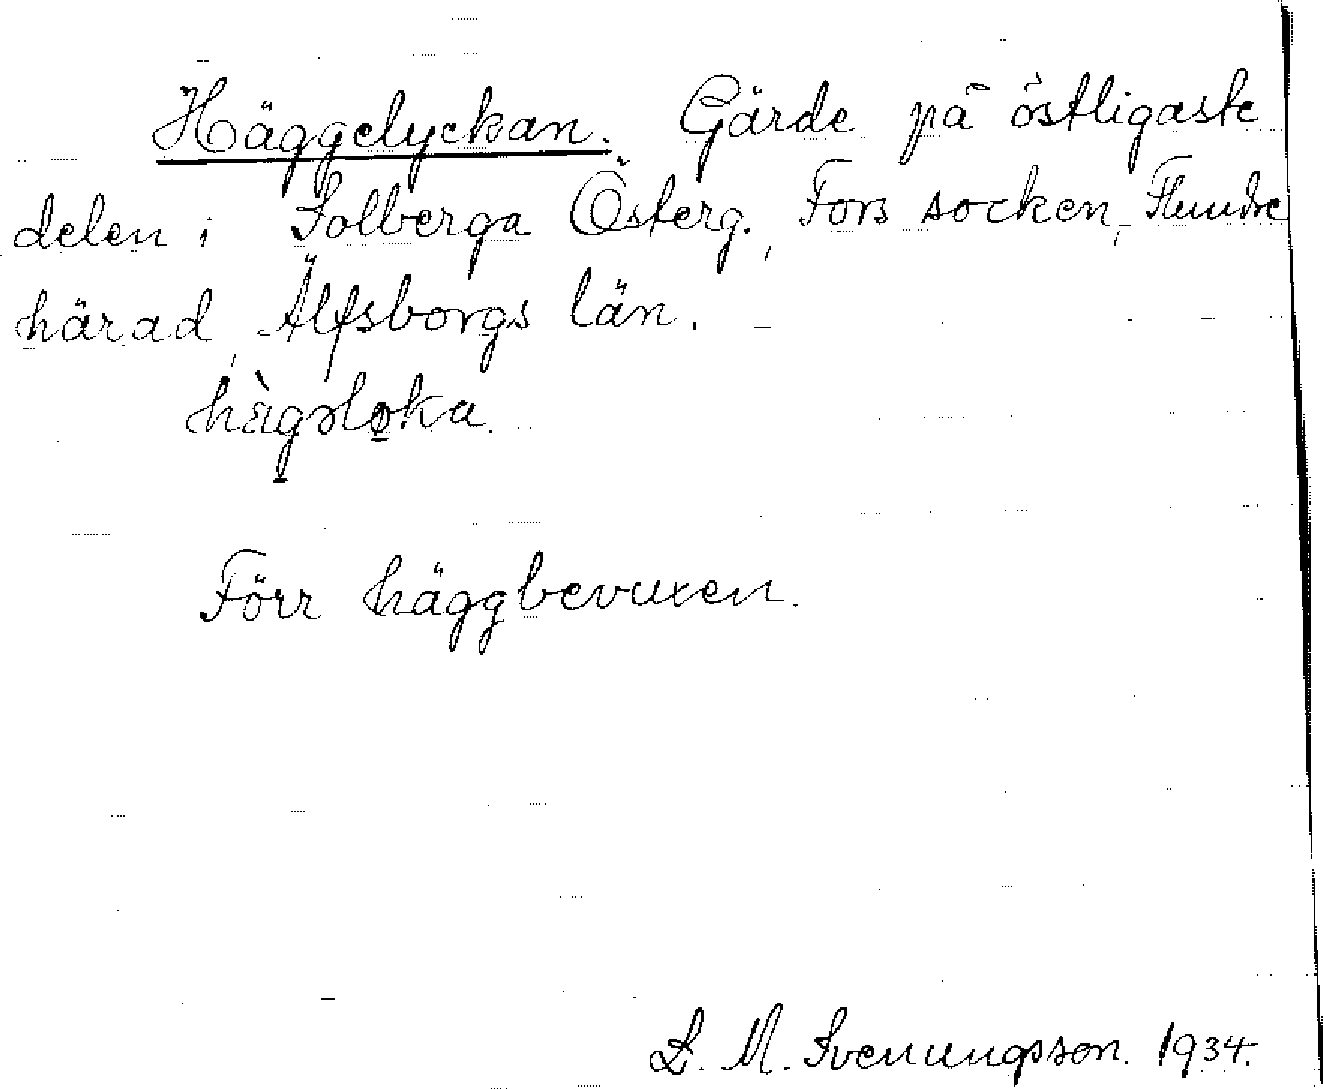 Häggelyckan. Gärde på östligaste
delen i Solberga Österg., Fors socken, Flundre
härad, Älfsborgs län.
hä̀gəlo̱ka.
Förr häggbevuxen.
L. M. Svenungsson. 1934.